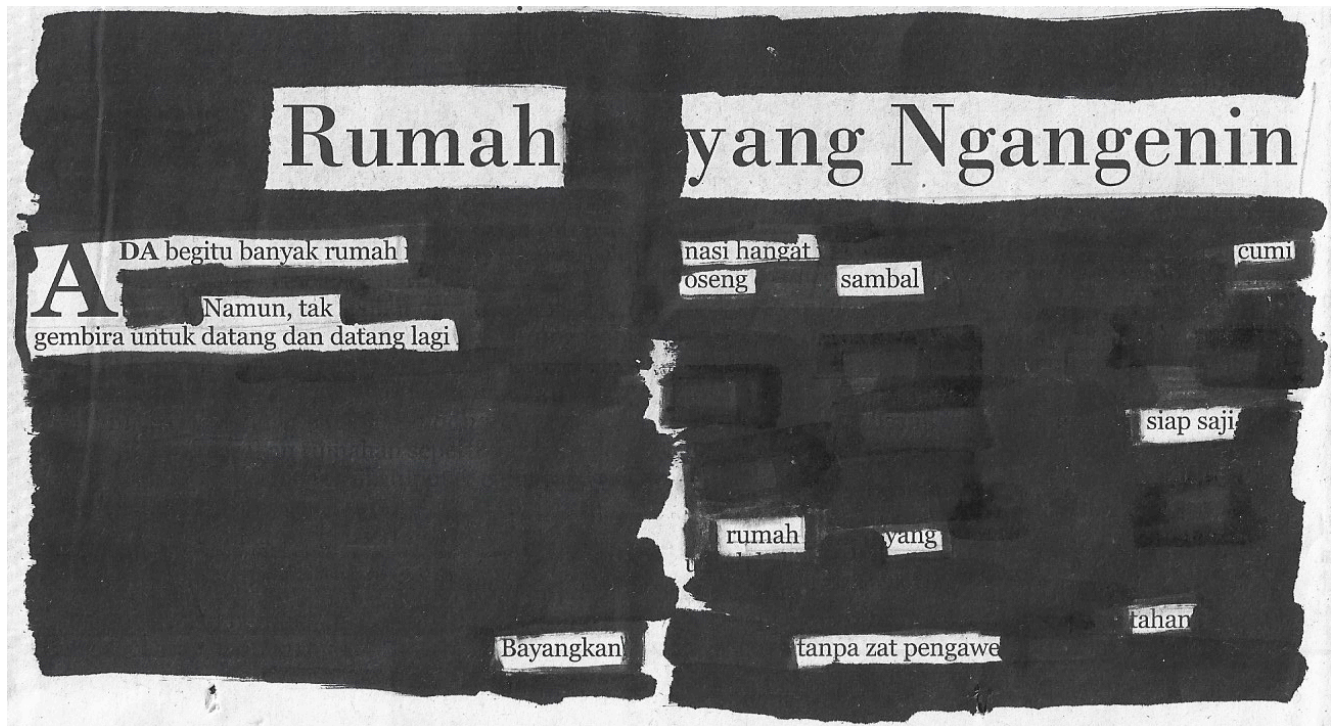 Rumah yang Ngangenin
ADA begitu banyak rumah
Namun, tak
gembira untuk datang dan datang lagi
Bayangkan
nasi hangat cumi
oseng sambal
siap saji
rumah yang
tahan
tanpa zat pengawe